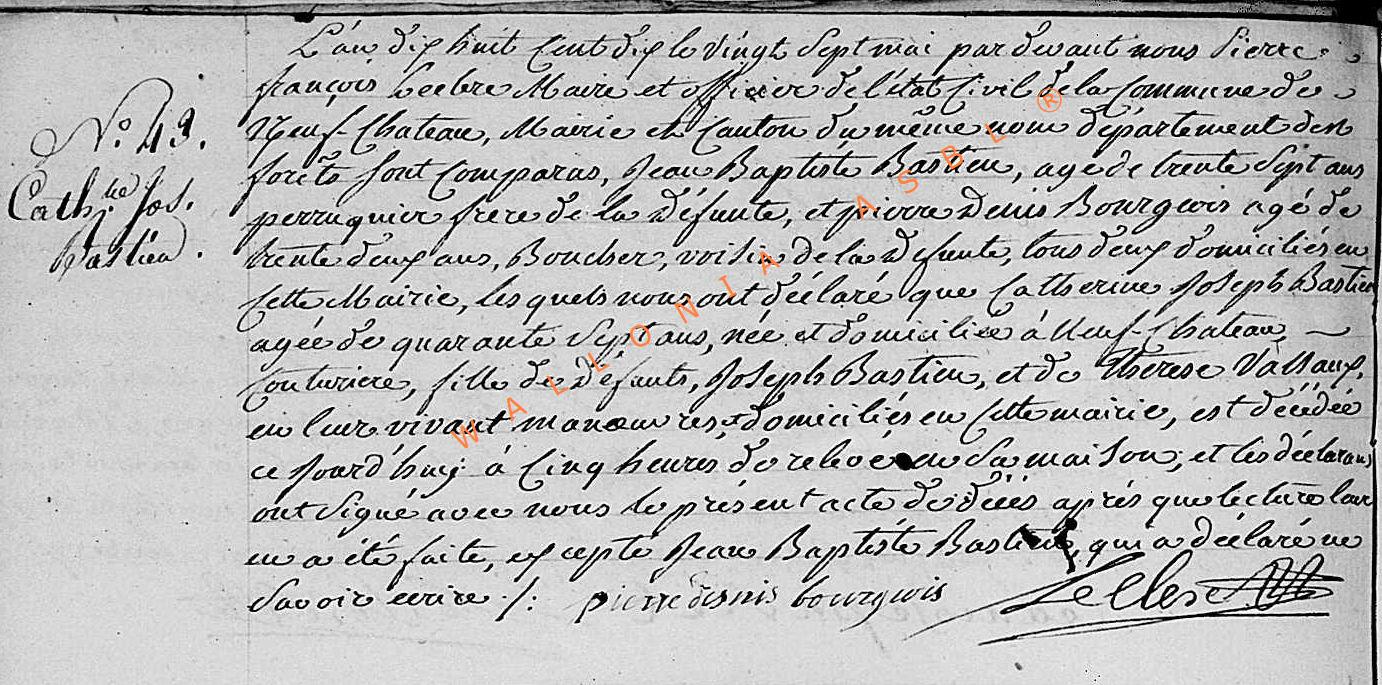 L'an dix huit Cent dix le vingt Sept mai par devant nous Pierre
françois Leclere Maire et officier de l'état Civil de la Commune de
Neuf-Chateau, Mairie et Canton du même nom département des
forêts sont comparus, Jean Baptiste Bastien, agé de trente Sept ans
perruquier frere de la défunte, et pierre Denis Bourgeois agé de
trente deux ans, Boucher, voisin de la défunte, tous deux domiciliés en
Cette Mairie, les quels nous ont déclaré que Catherine Joseph Bastien
agée de quarante Sept ans, née et domiciliée à Neuf-Chateau,
Couturiere, fille de défunts, Joseph Bastien, et de Thérese Vallaux,
en leur vivant manœuvres, domiciliés en Cette mairie, est décédée
ce Jourd'huy à Cinq heures de relevé en Sa maison, et les déclarans
ont Signé avec nous le présent acte de décès après que lecture leur
en a été faite, excepté Jean Baptiste Bastien, qui a déclaré ne
Savoir écrire ./:
pierre denis bourgeois
Leclere
N.º 49.
Cath.ne Jos.
Bastien.
WALLONIA ASBL ®